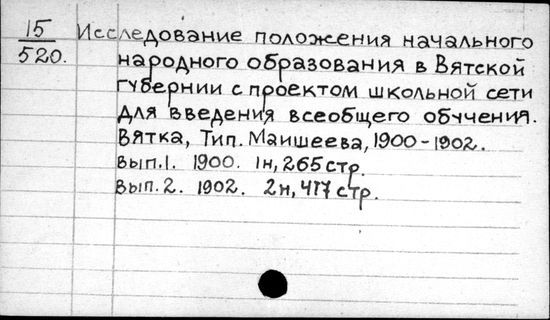 15 Исследование положения начального
520. народного образования в Вятской
губернии с проектом школьной сети
для введения всеобщего обучения.
Вятка, Тип. Маишеева, 1900-1902.
Вып.1. 1900. 1н, 265 стр.
Вып.2. 1902. 2н, 417 стр.